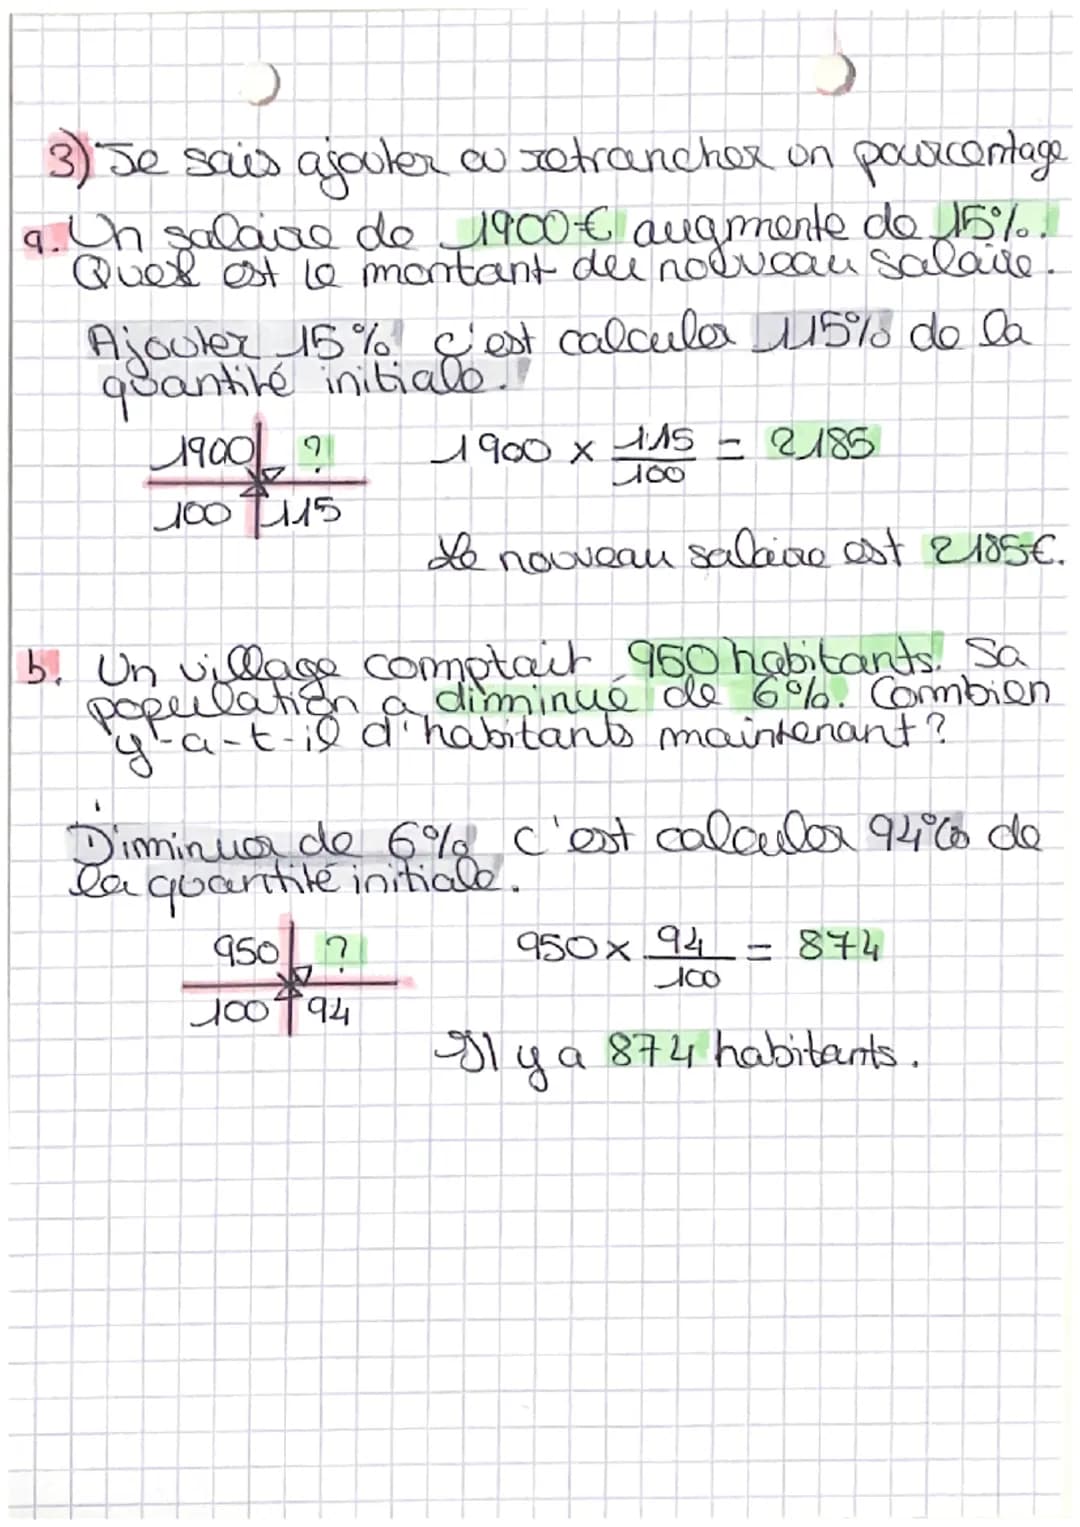 3) Je sais ajouter ou retrancher un pourcentage
a. Un salaire de 1900€ augmente de 15%.
Quel est le montant du nouveau salaire.
Ajouter 15% c'est calculer 115% de la
quantité initiale.
1900 ?
100 115
1900 x 115/100 = 2185
Le nouveau salaire est 2185€.
b. Un village comptait 950 habitants. Sa
population a diminué de 6%. Combien
y-a-t-il d'habitants maintenant?
Diminuer de 6% c'est calculer 94% de
la quantité initiale.
950 ?
100 94
950 x 94/100 = 874
Il y a 874 habitants.